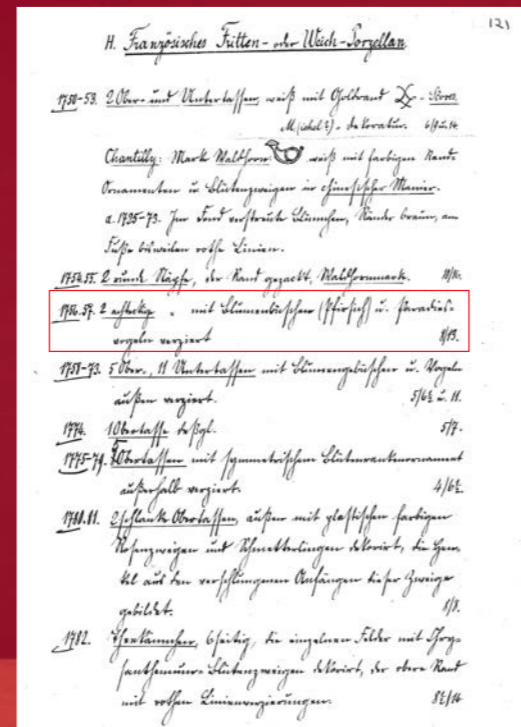 121
H. Französisches Fritten- oder Weich-Porzellan.
1750-53. 2 Ober- und Untertassen, weiß mit Goldrand
M(ichel?)-Dekorateur. 6/9 u. 14.
Chantilly: Mark Waldhorn weiß mit farbigen Rand-
Ornamenten u. Blütenzweigen in chinesischer Manier.
a. 1735-73. Im Fond verstreute Blümchen, Ränder braun, am
Fuße bisweilen rothe Linien.
1754.55. 2 runde Näpfe, der Rand gezackt, Waldhornmarke.
1756.57. 2 achteckig " mit Blumenbüschen (Pfirsich) u. Paradies-
vögeln verziert 8/13.
1758-73. 5 Ober-, 11 Untertassen mit Blumengebüschen u. Vögeln
außen verziert. 5/6½ u. 11.
1774. 1 Obertasse deßgl. 5/7.
1775-79. Obertassen mit symmetrischem Blütenrankenornament
außerhalb verziert. 4/6½.
1780.81. 2 schlanke Obertassen, außen mit plastischen farbigen
Rosenzweigen und Schmetterlingen dekorirt, die Hen-
kel aus den verschlungenen Anfängen dieser Zweige
gebildet. 8/8.
1782. Theekännchen, 6seitig, die einzelnen Felder mit Chry-
santhemum-Blütenzweigen dekorirt, der obere Rand
mit rothen Linienverzierungen. 8½/14